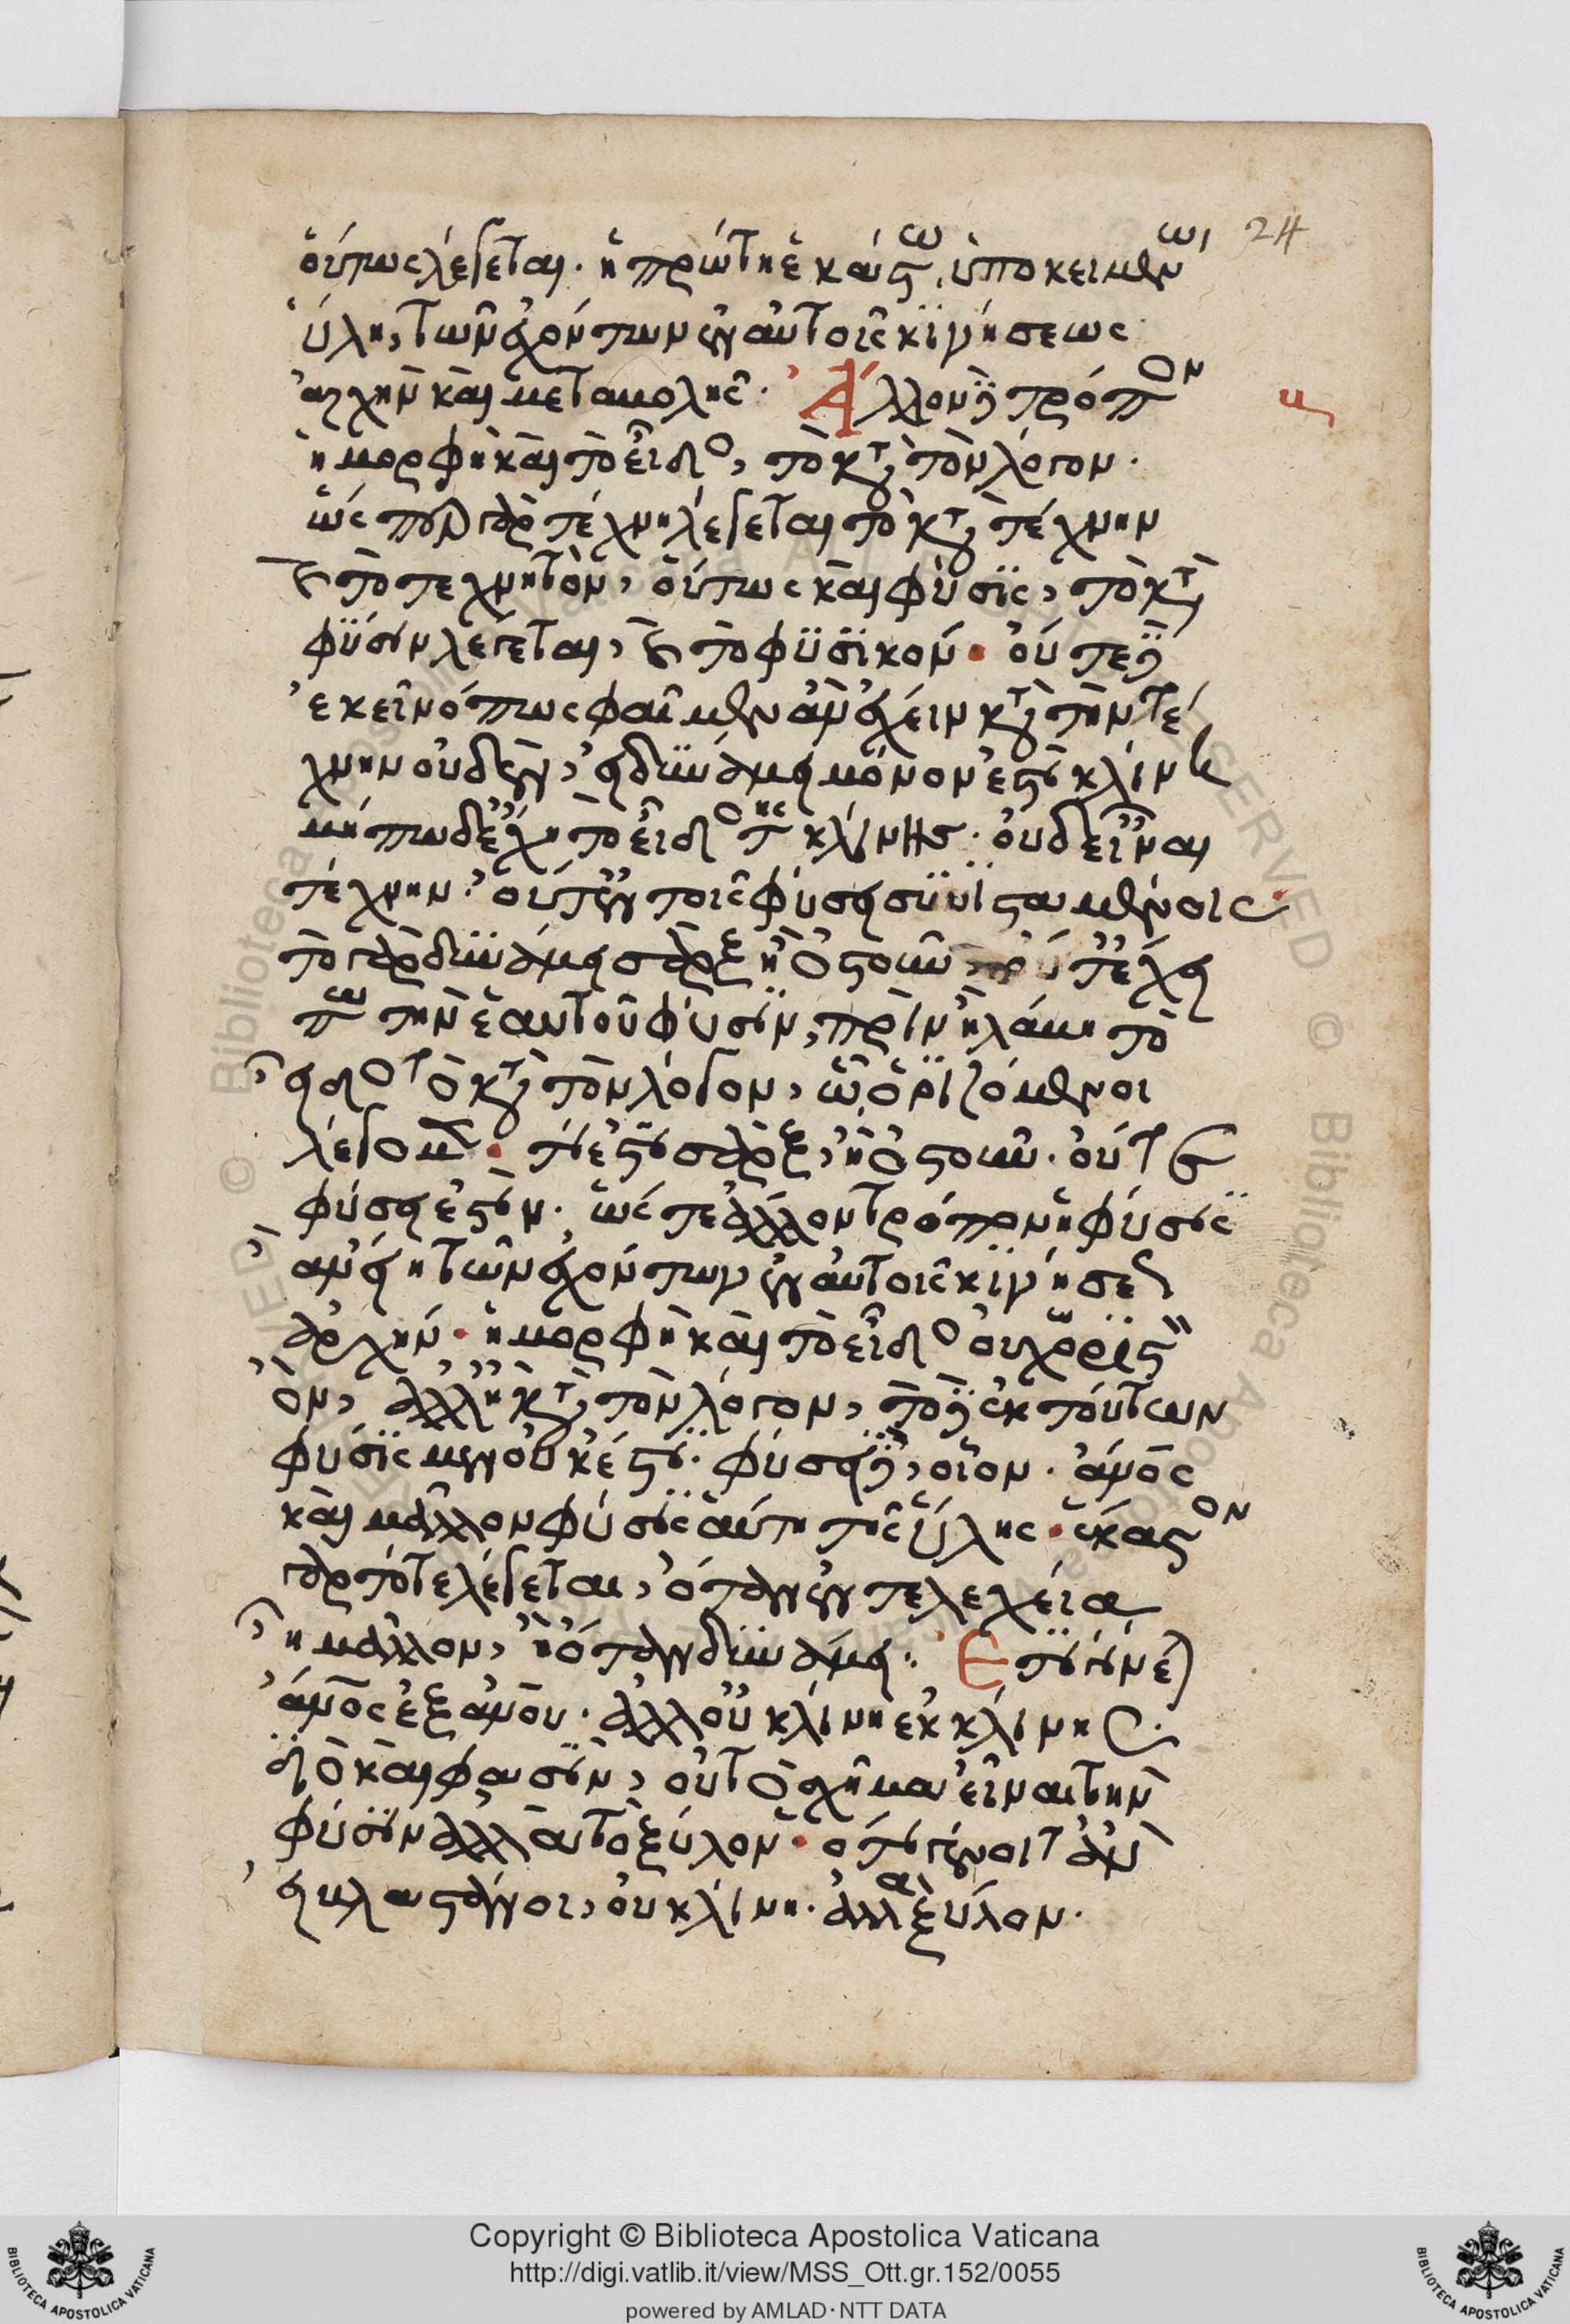 24
οὕτως λέγεται· ἡ πρώτη ἑκάστω ὑποκειμένωι
ὕλη, τῶν ἐχόντων ἐν αὑτοῖς κινήσεως
ἀρχὴν καὶ μεταβολῆς· Ἄλλον δὲ τρόπον
ἡ μορφὴ καὶ τὸ εἶδος, τὸ κατὰ τὸν λόγον·
ὥσπερ γὰρ τέχνη λέγεται τὸ κατὰ τέχνην
καὶ τὸ τεχνητὸν, οὕτως καὶ φύσις, τὸ κατὰ
φύσιν λέγεται, καὶ τὸ φυσικόν· οὔτε δὲ
ἐκεῖνό πως φαῖμεν ἂν ἔχειν κατὰ τὴν τέ
χνην οὐδὲν, εἰ δυνάμει μόνον ἐστὶ κλίνη
μήπω δ' ἔχει τὸ εἶδος τῆς κλίνης· οὐδ' εἶναι
τέχνην· οὔτ' ἐν τοῖς φύσει συνισταμένοις·
τὸ γὰρ δυνάμει σὰρξ ἢ ὀστοῦν, οὔτ' ἔχει
πω τὴν ἑαυτοῦ φύσιν, πρὶν ἢ λάβη τὸ
εἶδος τὸ κατὰ τὸν λόγον, ὧ ὁριζόμενοι
λέγομεν· τί ἐστι σὰρξ, ἢ ὀστοῦν· οὔτε
φύσει ἐστίν· ὥστε ἄλλον τρόπον ἡ φύσις
ἂν εἴη τῶν ἐχόντων ἐν αὑτοῖς κινήσεως
ἀρχήν· ἡ μορφὴ καὶ τὸ εἶδος οὐ χωριστὸν
ὂν, ἀλλ' ἢ κατὰ τὸν λόγον, τὸ δ' ἐκ τούτων
φύσις μὲν οὐκ ἔστι· φύσει δὲ, οἷον· ἄνθρωπος
καὶ μᾶλλον φύσις αὕτη τῆς ὕλης· ἕκαστον
γὰρ τότε λέγεται, ὅταν ἐντελεχεία
ἦ μᾶλλον, ἢ ὅταν δυνάμει· Ἔτι γίνεται
ἄνθρωπος ἐξ ἀνθρώπου· ἀλλ' οὐ κλίνη ἐκ κλίνης·
διὸ καὶ φασὶν, οὐ τὸ σχῆμα εἶναι τὴν
φύσιν ἀλλὰ τὸ ξύλον· ὅτι γένοιτ' ἂν
εἰ βλαστάνοι, οὐ κλίνη· ἀλλὰ ξύλον·
© Biblioteca Apostolica Vaticana
Copyright © Biblioteca Apostolica Vaticana
http://digi.vatlib.it/view/MSS_Ott.gr.152/0055
powered by AMLAD·NTT DATA
BIBLIOTECA APOSTOLICA VATICANA
BIBLIOTECA APOSTOLICA VATICANA